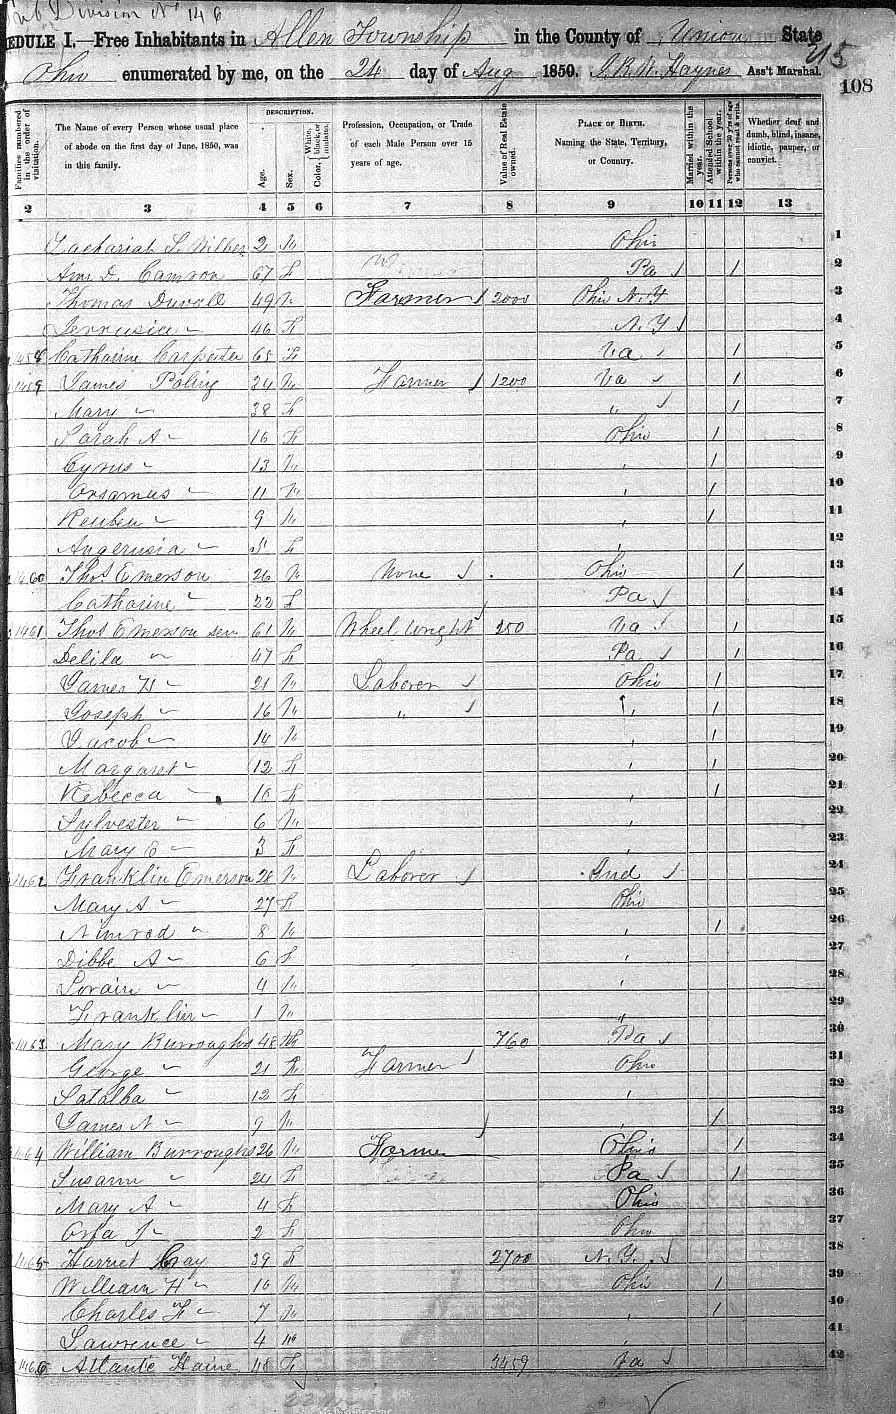 Division No 146
EDULE I.—Free Inhabitants in Allen Township in the County of Union State
Ohio enumerated by me, on the 24 day of Aug 1850. Haynes Ass't Marshal.
215
108
Families numbered in the order of visitation.
The Name of every Person whose usual place of abode on the first day of June, 1850, was in this family.
DESCRIPTION.
Age.
Sex.
Color, White, black, or mulatto.
Profession, Occupation, or Trade of each Male Person over 15 years of age.
Value of Real Estate owned.
PLACE OF BIRTH. Naming the State, Territory, or Country.
Married within the year.
Attended School within the year.
Persons over 20 y'rs of age who cannot read & write.
Whether deaf and dumb, blind, insane, idiotic, pauper, or convict.
2 3 4 5 6 7 8 9 10 11 12 13
Zachariah S. 2 m Ohio 1
Ann D. 67 f Pa / 1 2
Thomas Duvall 49 m Farmer / 2000 Ohio N.Y 3
Jerrusia " 46 f N.Y / 4
1458 Catharine Carpenter 65 f Va / 1 5
1459 James Poling m Farmer / 1200 Va / 1 6
Mary " 38 f " / 1 7
Sarah A " 16 f Ohio 1 8
Cyrus " 13 m " 1 9
Orsamus " 11 m " 1 10
Reuben " 9 m " 1 11
Angerusia " 5 f " 12
1460 Thos Emerson 26 m None / Ohio 1 13
Catharine " 22 f Pa / 14
1461 Thos Emerson sen 61 m Wheel Wright / 250 Va / 1 15
Delila " 47 f Pa / 1 16
James H " 21 m Laborer / Ohio 1 17
Joseph " 16 m " / " 1 18
Jacob " 14 m " 1 19
Margaret " 12 f " 1 20
Rebecca " 10 f " 1 21
Sylvester " 6 m " 22
Mary E " 3 f " 23
1462 Franklin Emerson 28 m Laborer / Ind / 24
Mary A " 27 f Ohio 25
Nimrod " 8 m " 1 26
Dibbe A " 6 f " 27
Lorain " 4 m " 28
Franklin " 1 m " 29
1463 Mary Burroughs 48 f 760 Pa / 30
George " 21 Farmer / Ohio 31
Satalba " 12 f " 32
James N " 9 m " 1 33
1464 William Burroughs 26 m Farmer Ohio 1 34
Susann " 24 f Pa / 1 35
Mary A " 4 f Ohio 36
Orfa J " 2 f Ohio 37
1465 Harriet Gray 39 f 2700 N.Y. / 38
William H " 10 m Ohio 1 39
Charles F " 7 m " 1 40
Lawrence " 4 m " 41
1466 Atlantic Haine 48 f 3459 Va / 42